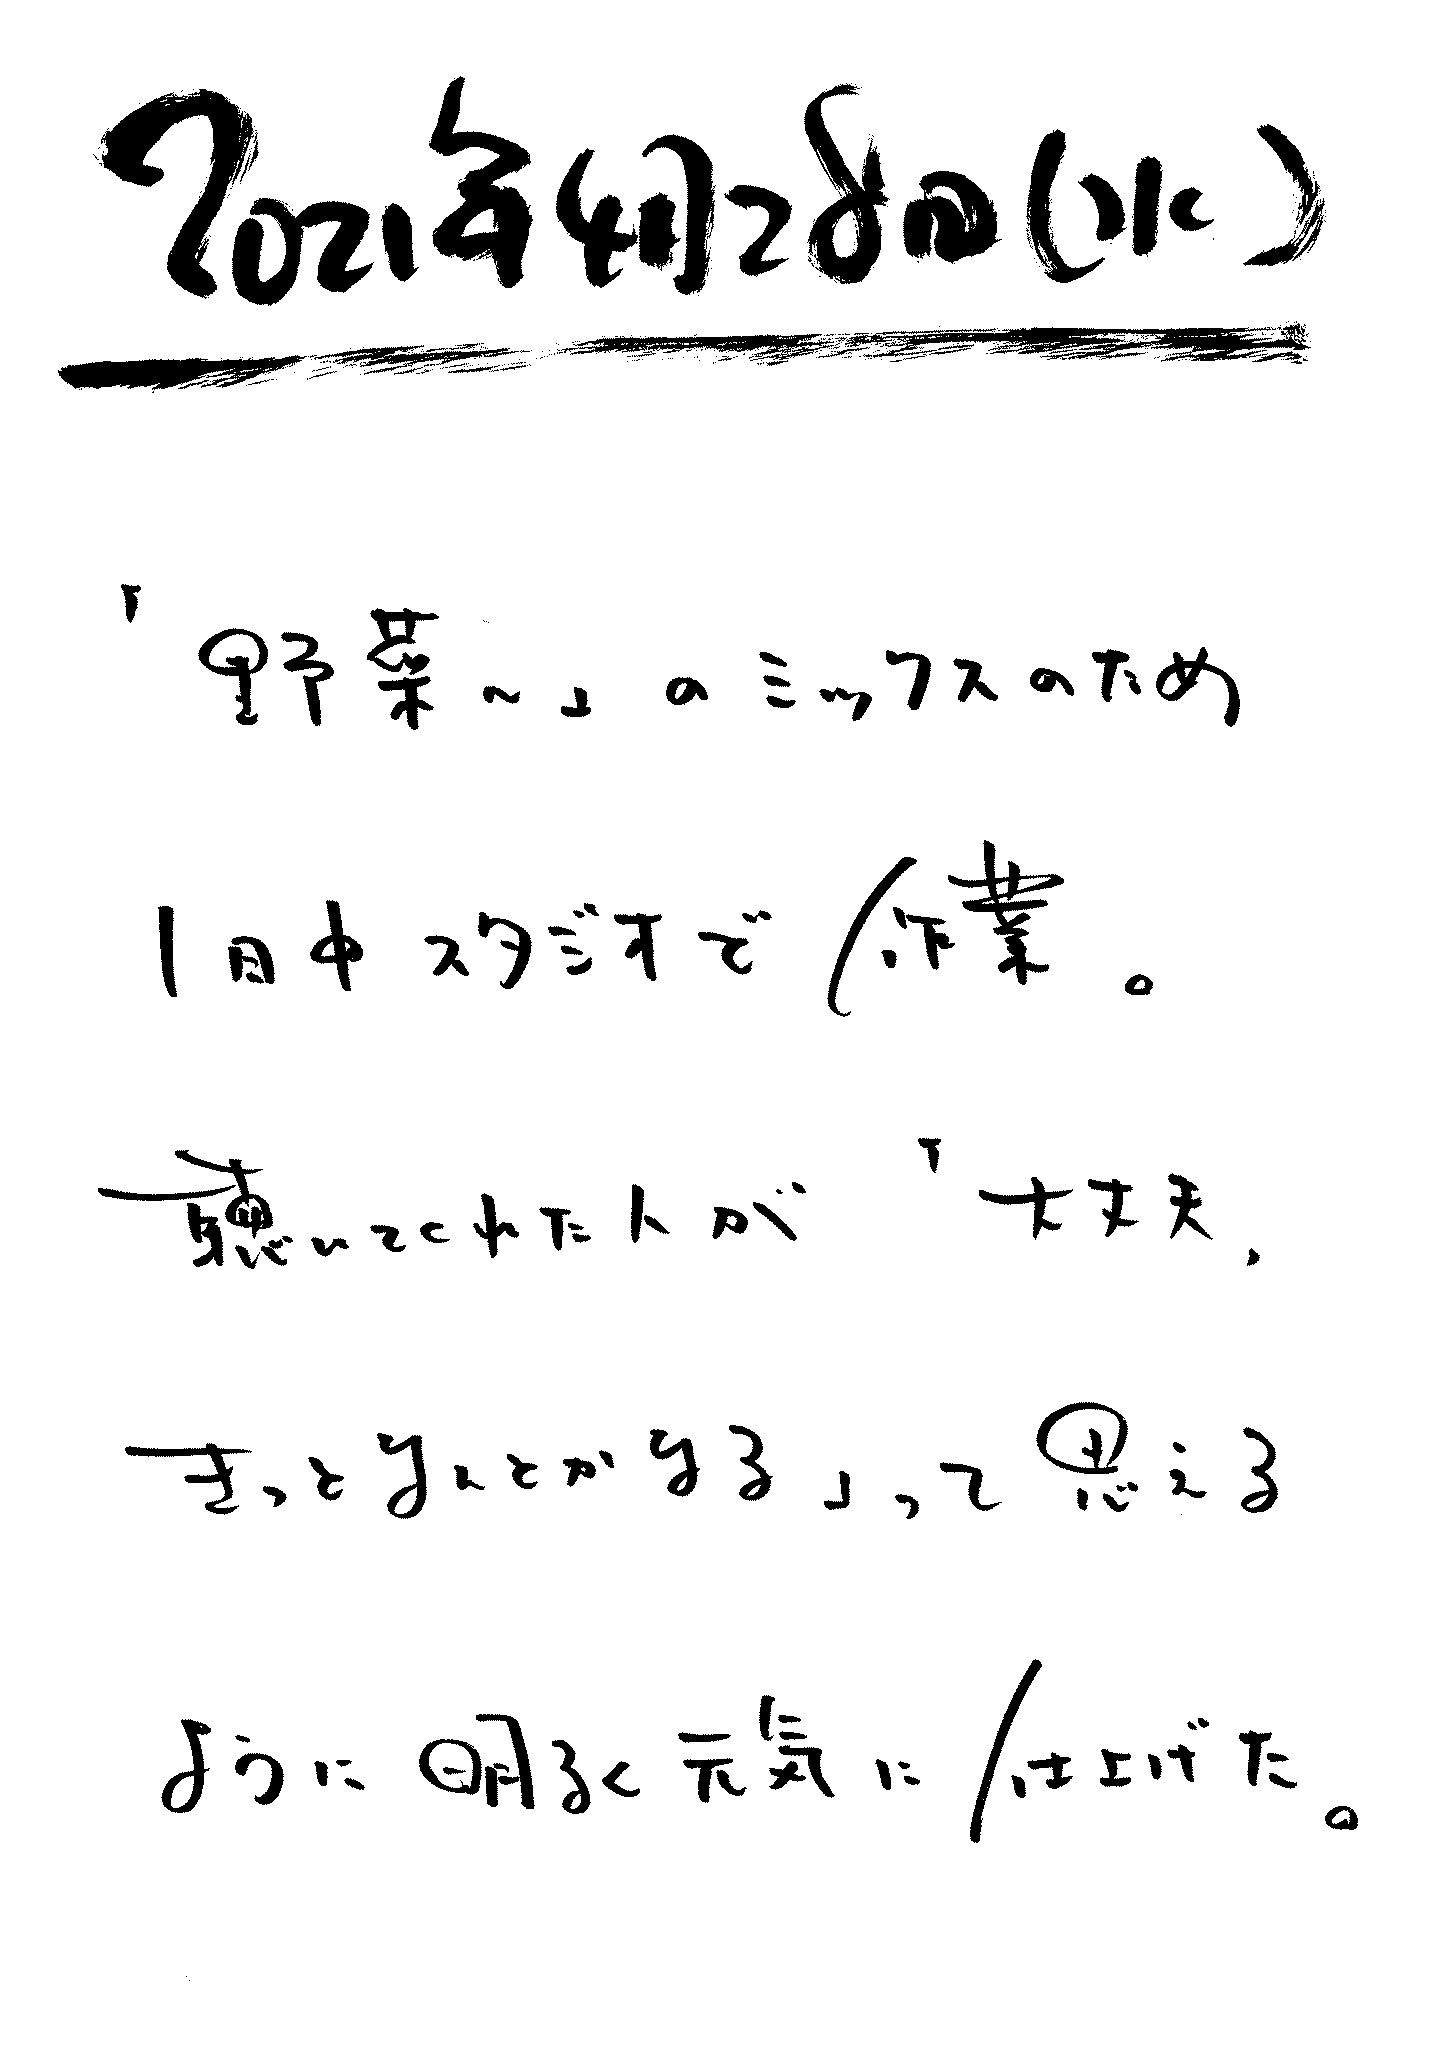 2021年4月28日(水)
「野菜〜」のミックスのため
1日中スタジオで作業。
聴いてくれた人が「大丈夫、
きっとなんとかなる」って思える
ように明るく元気に仕上げた。